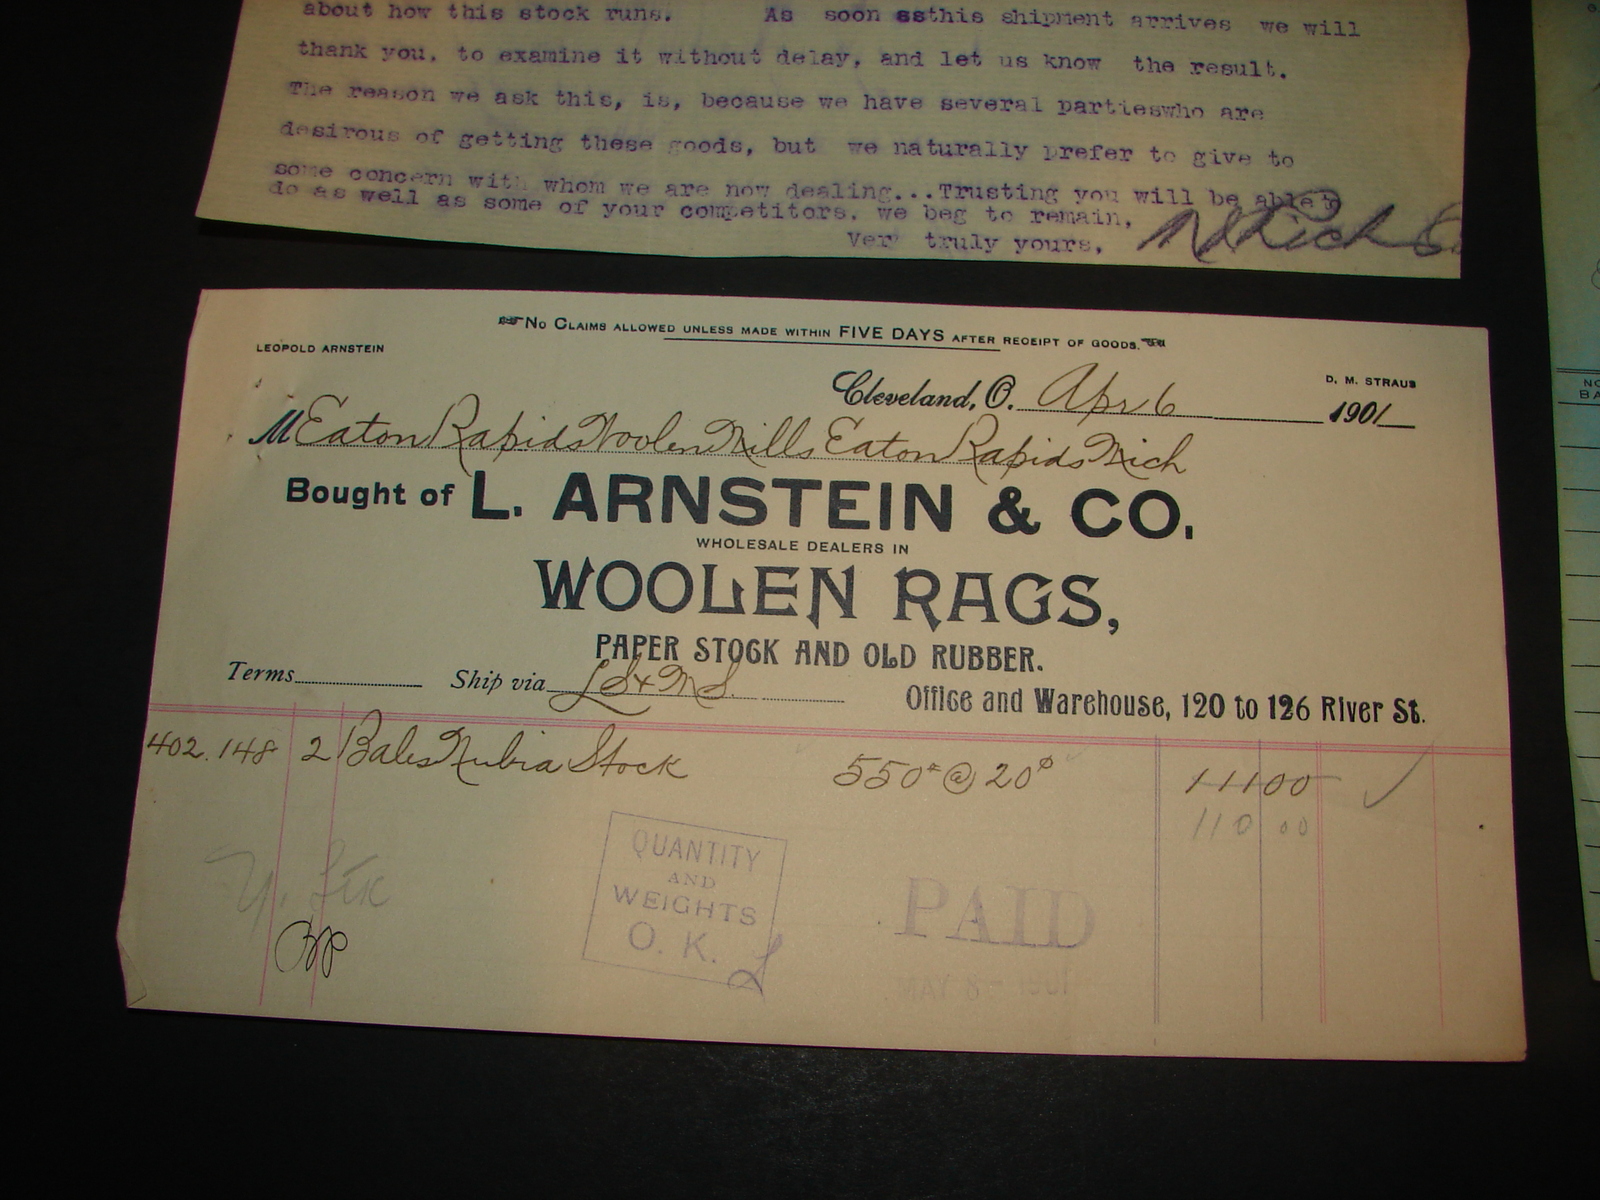 about how this stock runs. As soon assthis shipment arrives we will
thank you, to examine it without delay, and let us know the result.
The reason we ask this, is, because we have several partieswho are
desirous of getting these goods, but we naturally prefer to give to
some concern with whom we are now dealing...Trusting you will be able to
do as well as some of your competitors, we beg to remain,
Very truly yours,
No Claims allowed unless made within FIVE DAYS after receipt of goods.
LEOPOLD ARNSTEIN
D. M. STRAUS
Cleveland, O. Apr 6 1901
M Eaton Rapids Woolen Mills Eaton Rapids Mich
Bought of L. ARNSTEIN & CO.
WHOLESALE DEALERS IN
WOOLEN RAGS,
PAPER STOCK AND OLD RUBBER.
Terms Ship via L S & M S.
Office and Warehouse, 120 to 126 River St.
402.148 2 Bales Nubia Stock 550# @ 20¢ 111 00
110 00
QUANTITY
AND
WEIGHTS
O. K.
PAID
MAY 8 - 1901